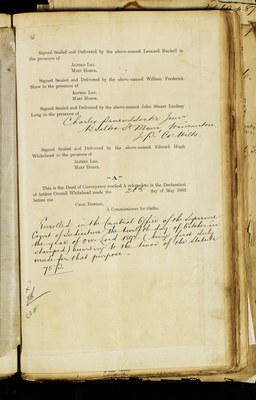 Signed Sealed and Delivered by the above-named Leonard Burchell in
the presence of
ALFRED LEE.
MARY HORNE.
Signed Sealed and Delivered by the above-named William Frederick
Shaw in the presence of
ALFRED LEE.
MARY HORNE.
Signed Sealed and Delivered by the above-named John Stuart Lindsay
Long in the presence of
Charles
St
J.P. Co. Wilts.
Signed Sealed and Delivered by the above-named Edward Hugh
Whitehead in the presence of
ALFRED LEE.
MARY HORNE.
—A—
This is the Deed of Conveyance marked A referred to in the Declaration
of Arthur Creswill Whitehead made the day of May 1892
before me
CHAS.
A Commissioner for Oaths.
Enrolled in the Central Office of the Supreme
Court of Judicature the twelfth day of October in
the year of Our Lord 1892 (being first duly
stamped) according to the tenor of the Statute
made for that purpose.